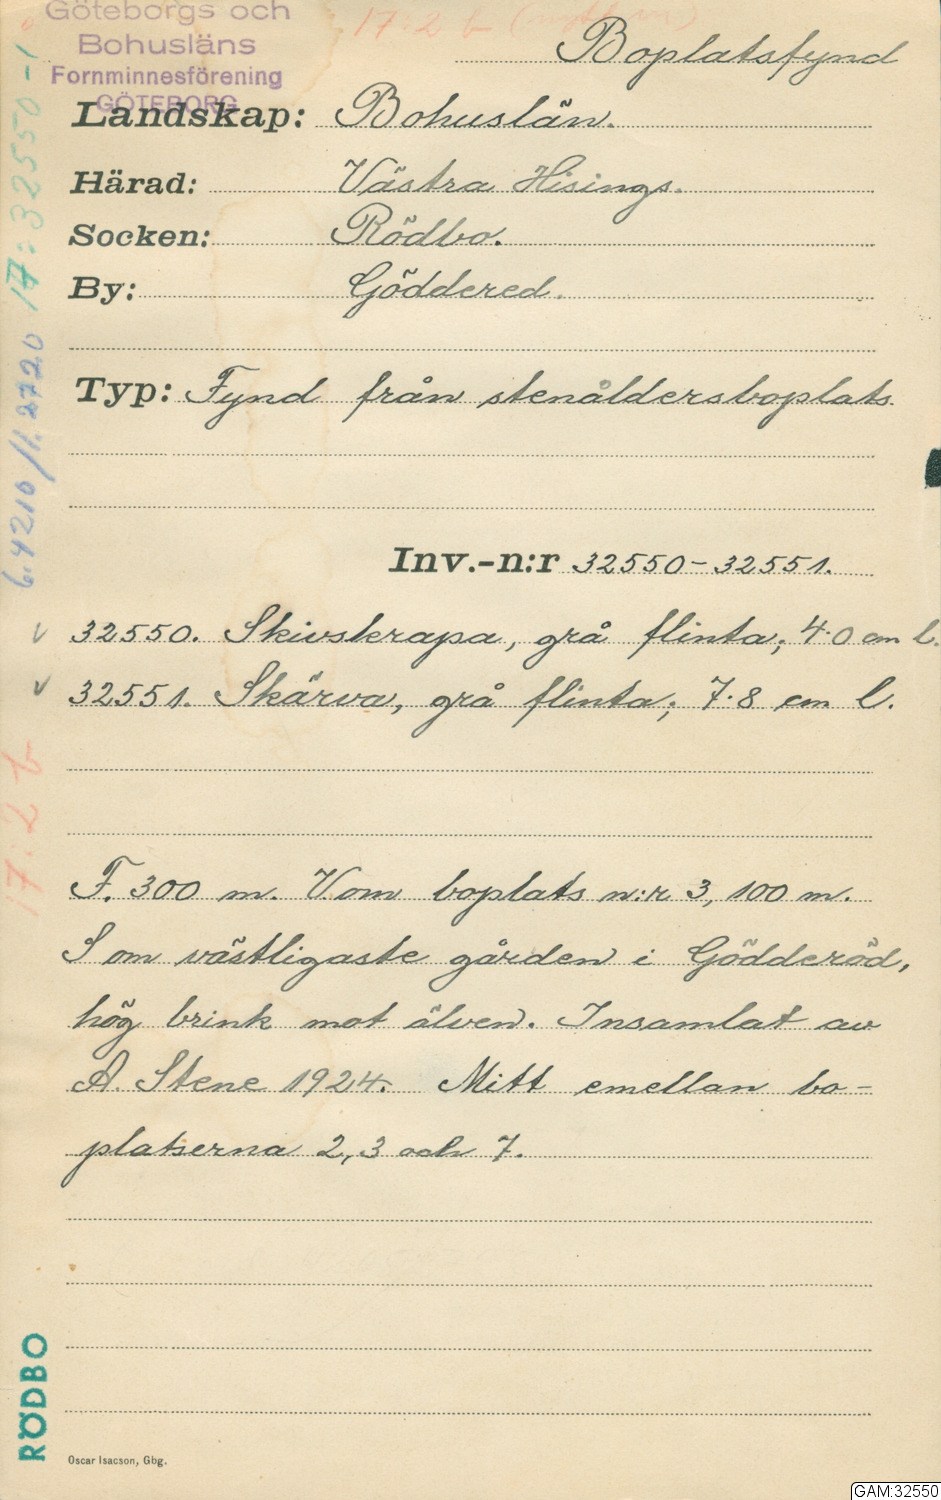 Göteborgs och
Bohusläns
Fornminnesförening
GÖTEBORG
17:2 b
Boplatsfynd
Landskap: Bohuslän.
Härad: Västra Hisings.
Socken: Rödbo.
By: Göddered.
Typ: Fynd från stenåldersboplats
Inv.-n:r 32550-32551.
32550. Skivskrapa, grå flinta; 4.0 cm l.
32551. Skärva, grå flinta; 7.8 cm l.
F. 300 m. V om boplats n:r 3, 100 m.
S om västligaste gården i Gödderöd,
hög brink mot älven. Insamlat av
A. Stene 1924. Mitt emellan bo-
platserna 2, 3 och 7.
17:32550-1
6.4210/11.2720
17:2 b
RÖDBO
Oscar Isacson, Gbg.
GAM:32550